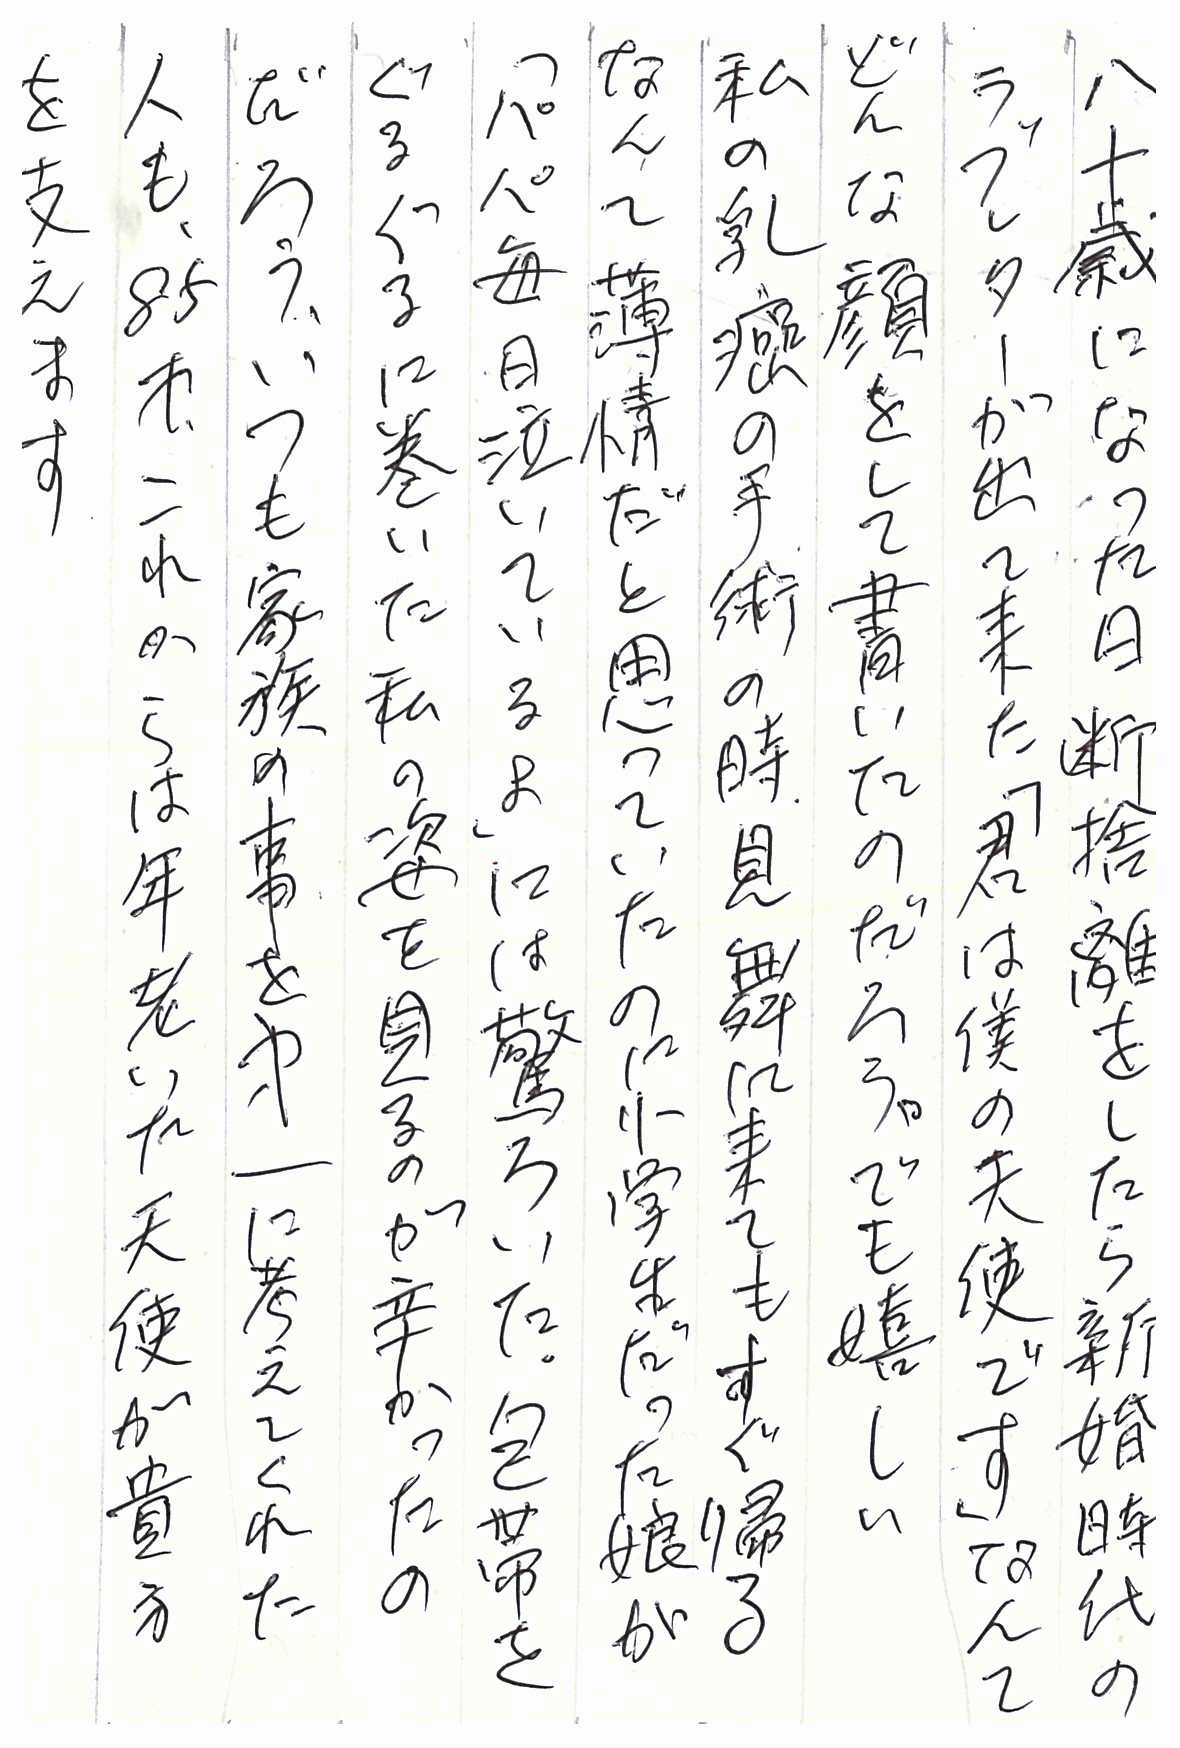 八十歳になった日断捨離をしたら新婚時代の
ラブレターが出て来た「君は僕の天使です」なんて
どんな顔をして書いたのだろう。でも嬉しい
私の乳癌の手術の時見舞に来てもすぐ帰る
なんて薄情だと思っていたのに小学生だった娘が
「パパ毎日泣いているよ」には驚ろいた。包帯を
ぐるぐるに巻いた私の姿を見るのが辛かったの
だろう、いつも家族の事を才一に考えてくれた
人も、85才、これからは年老いた天使が貴方
を支えます